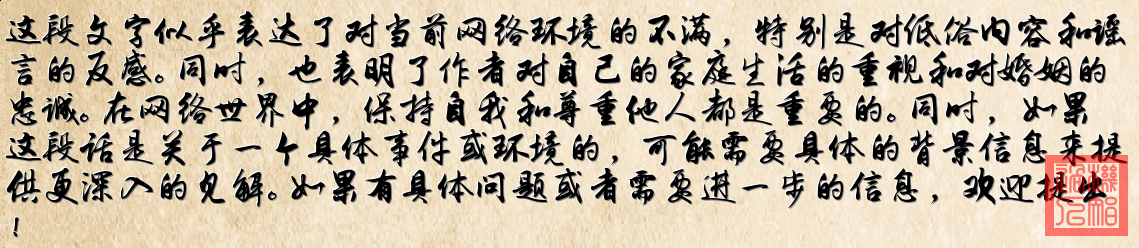 这段文字似乎表达了对当前网络环境的不满，特别是对低俗内容和谣
言的反感。同时，也表明了作者对自己的家庭生活的重视和对婚姻的
忠诚。在网络世界中，保持自我和尊重他人都是重要的。同时，如果
这段话是关于一个具体事件或环境的，可能需要具体的背景信息来提
供更深入的见解。如果有具体问题或者需要进一步的信息，欢迎提出
！